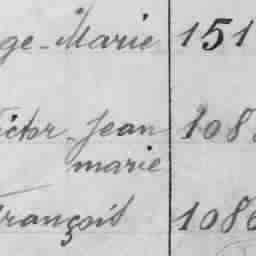 ge-Marie 151
ictor Jean 108
marie
François 1086